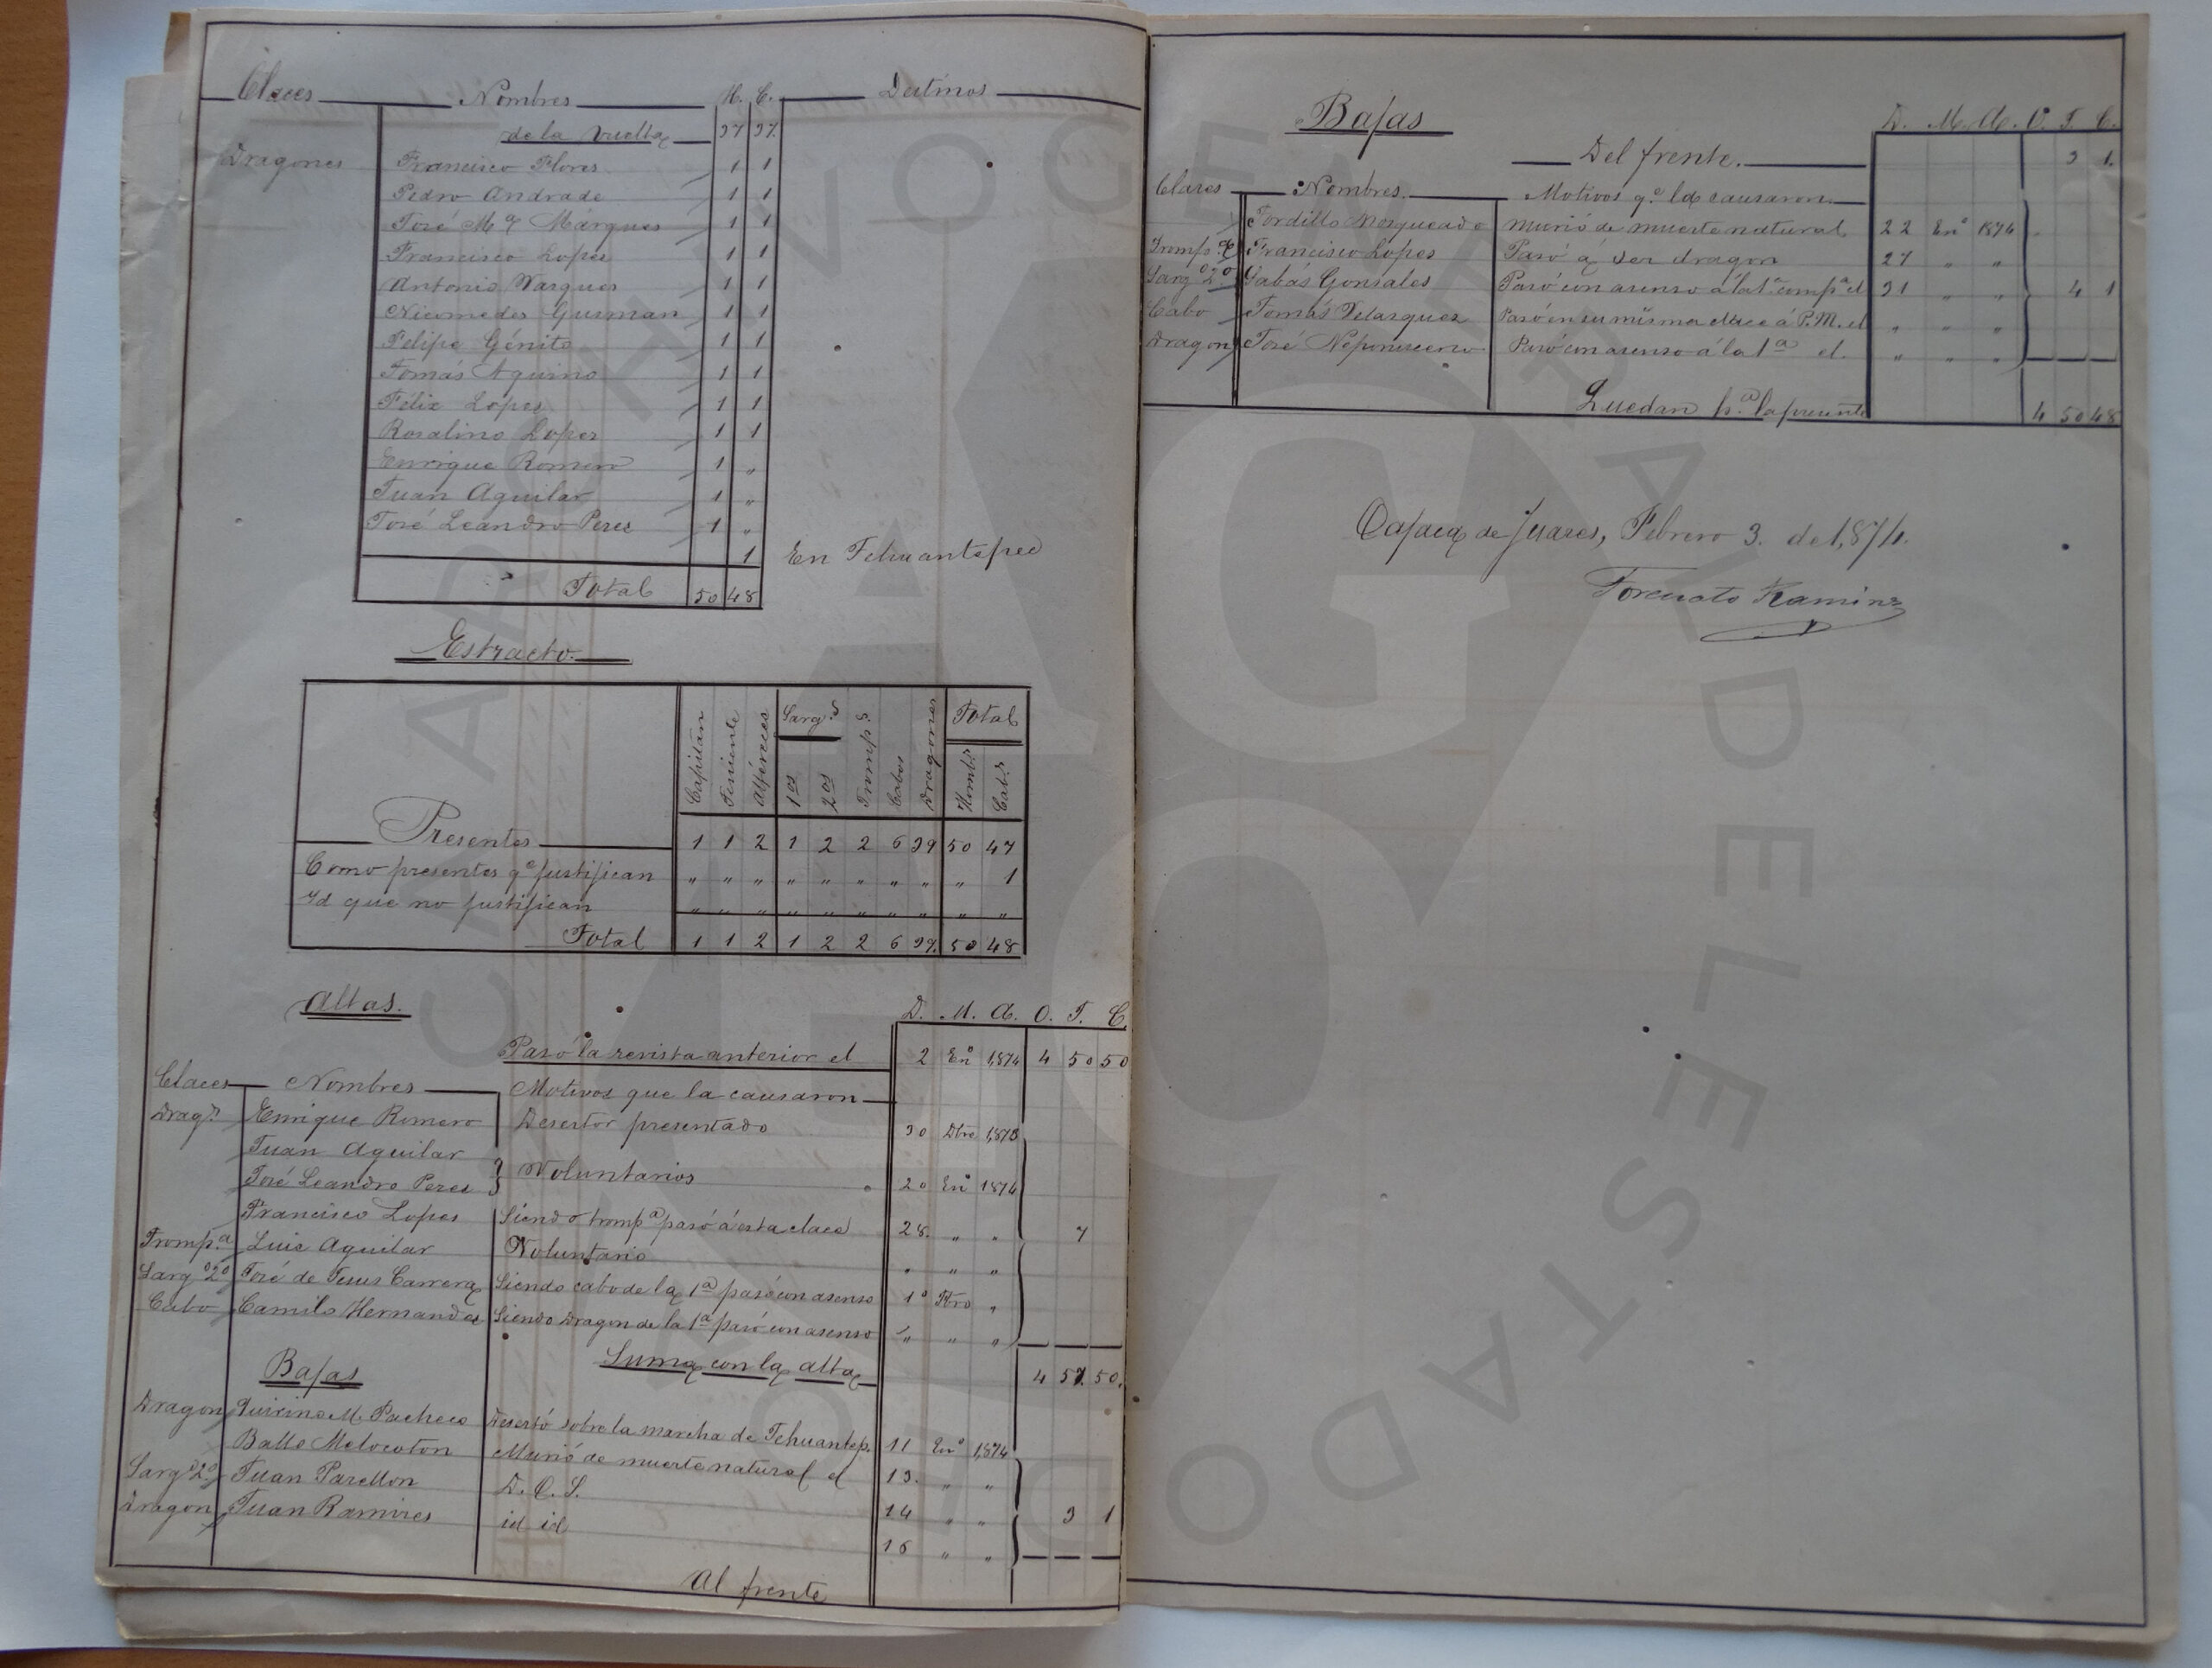 Claces Nombres H. C. Destinos
de la vuelta 37 37
Dragones Francisco Flores 1 1
Pedro Andrade 1 1
José Mª Márques 1 1
Francisco Lopes 1 1
Antonio Vasques 1 1
Nicomedes Gusman 1 1
Felipe Génito 1 1
Tomás Aquino 1 1
Félix López 1 1
Rosalino Lopez 1 1
Enrique Romero 1 "
Juan Aguilar 1 "
José Leandro Peres 1 "
1 En Tehuantepec
Total 50 48
Estracto.
Capitán Teniente Alféreces Sargs. 1os 2os Tromps. Cabos Dragones Total Hombs. Cabs.
Presentes 1 1 2 1 2 2 6 39 50 47
Como presentes qe justifican " " " " " " " " " 1
Id que no justifican " " " " " " " " " "
Total 1 1 2 1 2 2 6 39. 50 48
Altas.
D. M. A. O. T. C.
Pasó la revista anterior el 2 Enº 1,874 4 50 50
Claces Nombres Motivos que la causaron
Dragº Enrique Romero Desertor presentado 30 Dbre 1,873
Juan Aguilar
José Leandro Peres Voluntarios 20 Enº 1874
Francisco Lopes Siendo trompª pasó á esta clace 28. " " 7
Trompª Luis Aguilar Voluntario " " "
Sargº 2º José de Jesus Carrera Siendo cabo de la 1ª pasó con asenso 1º Fbro "
Cabo Camilo Hernandes Siendo Dragon de la 1ª pasó con asenso " " "
Suma con la alta 4 57. 50.
Bajas
Dragon Quirino M. Pacheco Desertó sobre la marcha de Tehuantep. 11 Enº 1,874
Ballo Melocoton Murió de muerte natural el 13. " "
Sargº 2º Juan Parellon D. C. S. 14 " " 3 1
Dragon Juan Ramires id id 16 " "
Al frente
Bajas
D. M. A. O. T. C.
Del frente. 3 1.
Clases Nombres. Motivos qe las causaron
Tordillo Mosqueado Murió de muerte natural 22 Enº 1874
Trompª Francisco Lopes Pasó á ser dragon 27 " "
Sargº 2º Sabás Gonsales Pasó con asenso á la 1ª compª el 31 " " 4 1
Cabo Tomás Velasquez Pasó en su misma clace á P.M. el " " "
Dragon José Nepomuceno Pasó con asenso á la 1ª el. " " "
Quedan pª la presente 4 50 48
Oajaca de Juares, Febrero 3. de 1,874.
Torcuato Ramirz
ARCHIVO GENERAL DEL ESTADO DE OAXACA
AGEO